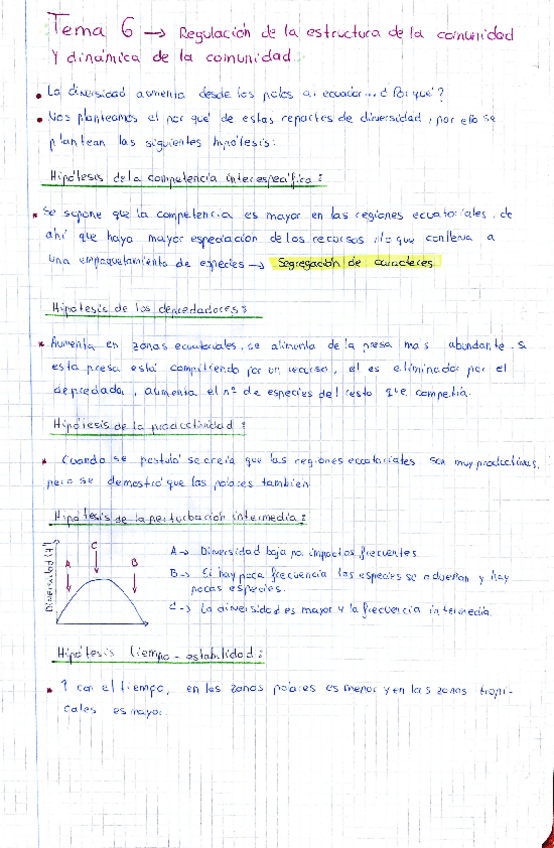 Tema 6 → Regulación de la estructura de la comunidad
y dinámica de la comunidad.
• La diversidad aumenta desde los polos al ecuador... ¿Por qué?
• Nos planteamos el por qué de estas repartes de diversidad, por ello se
plantean las siguientes hipótesis:
Hipótesis de la competencia interespecífica:
• Se supone que la competencia es mayor en las regiones ecuatoriales, de
ahí que haya mayor especiación de los recursos, lo que conlleva a
una empaquetamiento de especies → Segregación de caracteres.
Hipótesis de los depredadores:
• Aumenta en zonas ecuatoriales, se alimenta de la presa mas abundante, si
esta presa está compitiendo por un recurso, él es eliminador por el
depredador, aumenta el nº de especies del resto que competía.
Hipótesis de la productividad:
• Cuando se postuló se creía que las regiones ecuatoriales son muy productivas,
pero se demostró que las polares también
Hipótesis de la perturbación intermedia:
Diversidad (H')
A
C
B
A → Diversidad baja por impactos frecuentes
B → Si hay poca frecuencia las especies se adueñan y hay
pocas especies.
C → La diversidad es mayor y la frecuencia intermedia.
Hipótesis tiempo-estabilidad:
• ↑ con el tiempo, en las zonas polares es menor y en las zonas tropi-
cales es mayor.